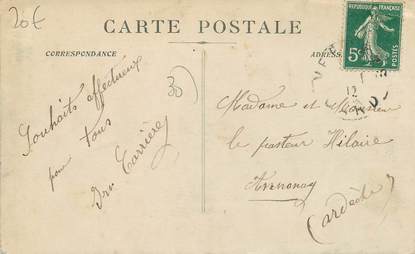 20€
CARTE POSTALE
CORRESPONDANCE
ADRESSE
REPUBLIQUE FRANÇAISE
5c
POSTES
30
Souhaits affectueux
pour tous
Carrière
Madame et Monsieur
le pasteur Hilaire
Annonay
(Ardèche)
12